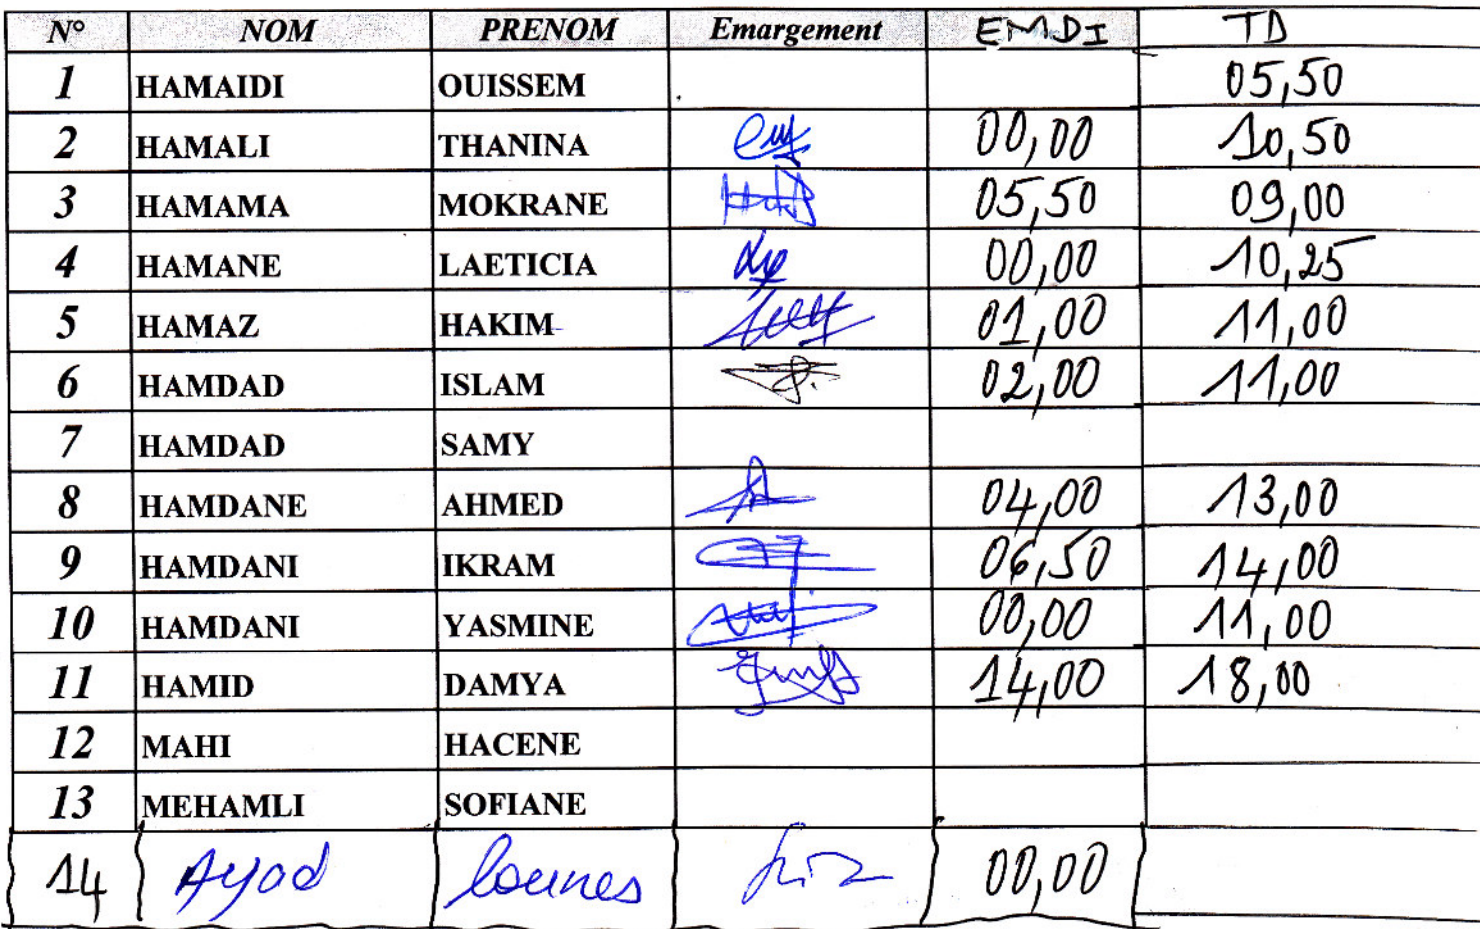 N° NOM PRENOM Emargement EMDI TD
1 HAMAIDI OUISSEM 05,50
2 HAMALI THANINA 00,00 10,50
3 HAMAMA MOKRANE 05,50 09,00
4 HAMANE LAETICIA 00,00 10,25
5 HAMAZ HAKIM 01,00 11,00
6 HAMDAD ISLAM 02,00 11,00
7 HAMDAD SAMY
8 HAMDANE AHMED 04,00 13,00
9 HAMDANI IKRAM 06,50 14,00
10 HAMDANI YASMINE 00,00 11,00
11 HAMID DAMYA 14,00 18,00
12 MAHI HACENE
13 MEHAMLI SOFIANE
14 Ayad lounes 00,00